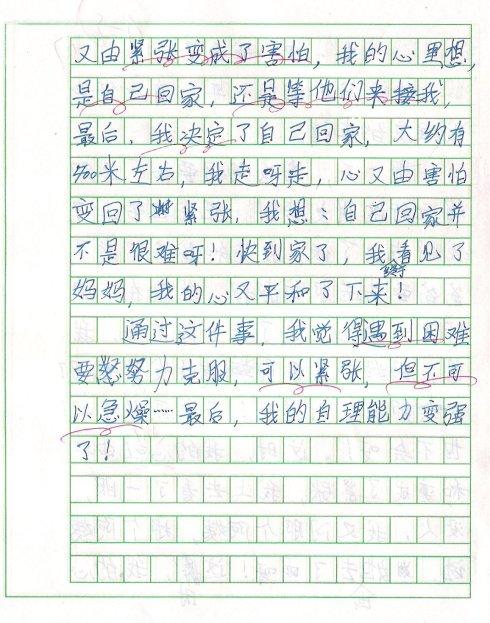 又由紧张变成了害怕，我的心里想，
是自己回家，还是等他们来接我，
最后，我决定了自己回家，大约有
500米左右，我走呀走，心又由害怕
变回了紧张，我想：自己回家并
不是很难呀！快到家了，我看见了
妈妈，我的心又平和了下来！
通过这件事，我觉得遇到困难
要努力克服，可以紧张，但不可
以急燥……最后，我的自理能力变强
了！